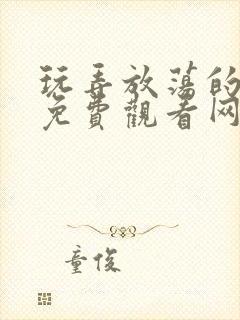 玩弄放荡的
免費觀看网
童俊